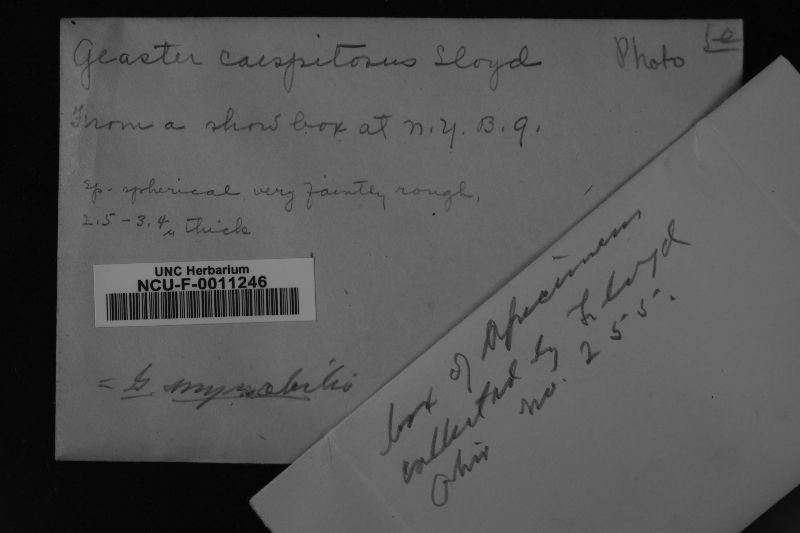 Geaster caespitosus Lloyd
Photo
From a show box at N.Y.B.G.
Sp. spherical, very faintly rough,
2.5-3.4 µ thick
UNC Herbarium
NCU-F-0011246
= G.
box of specimens
collected by Lloyd
Ohio no. 255.